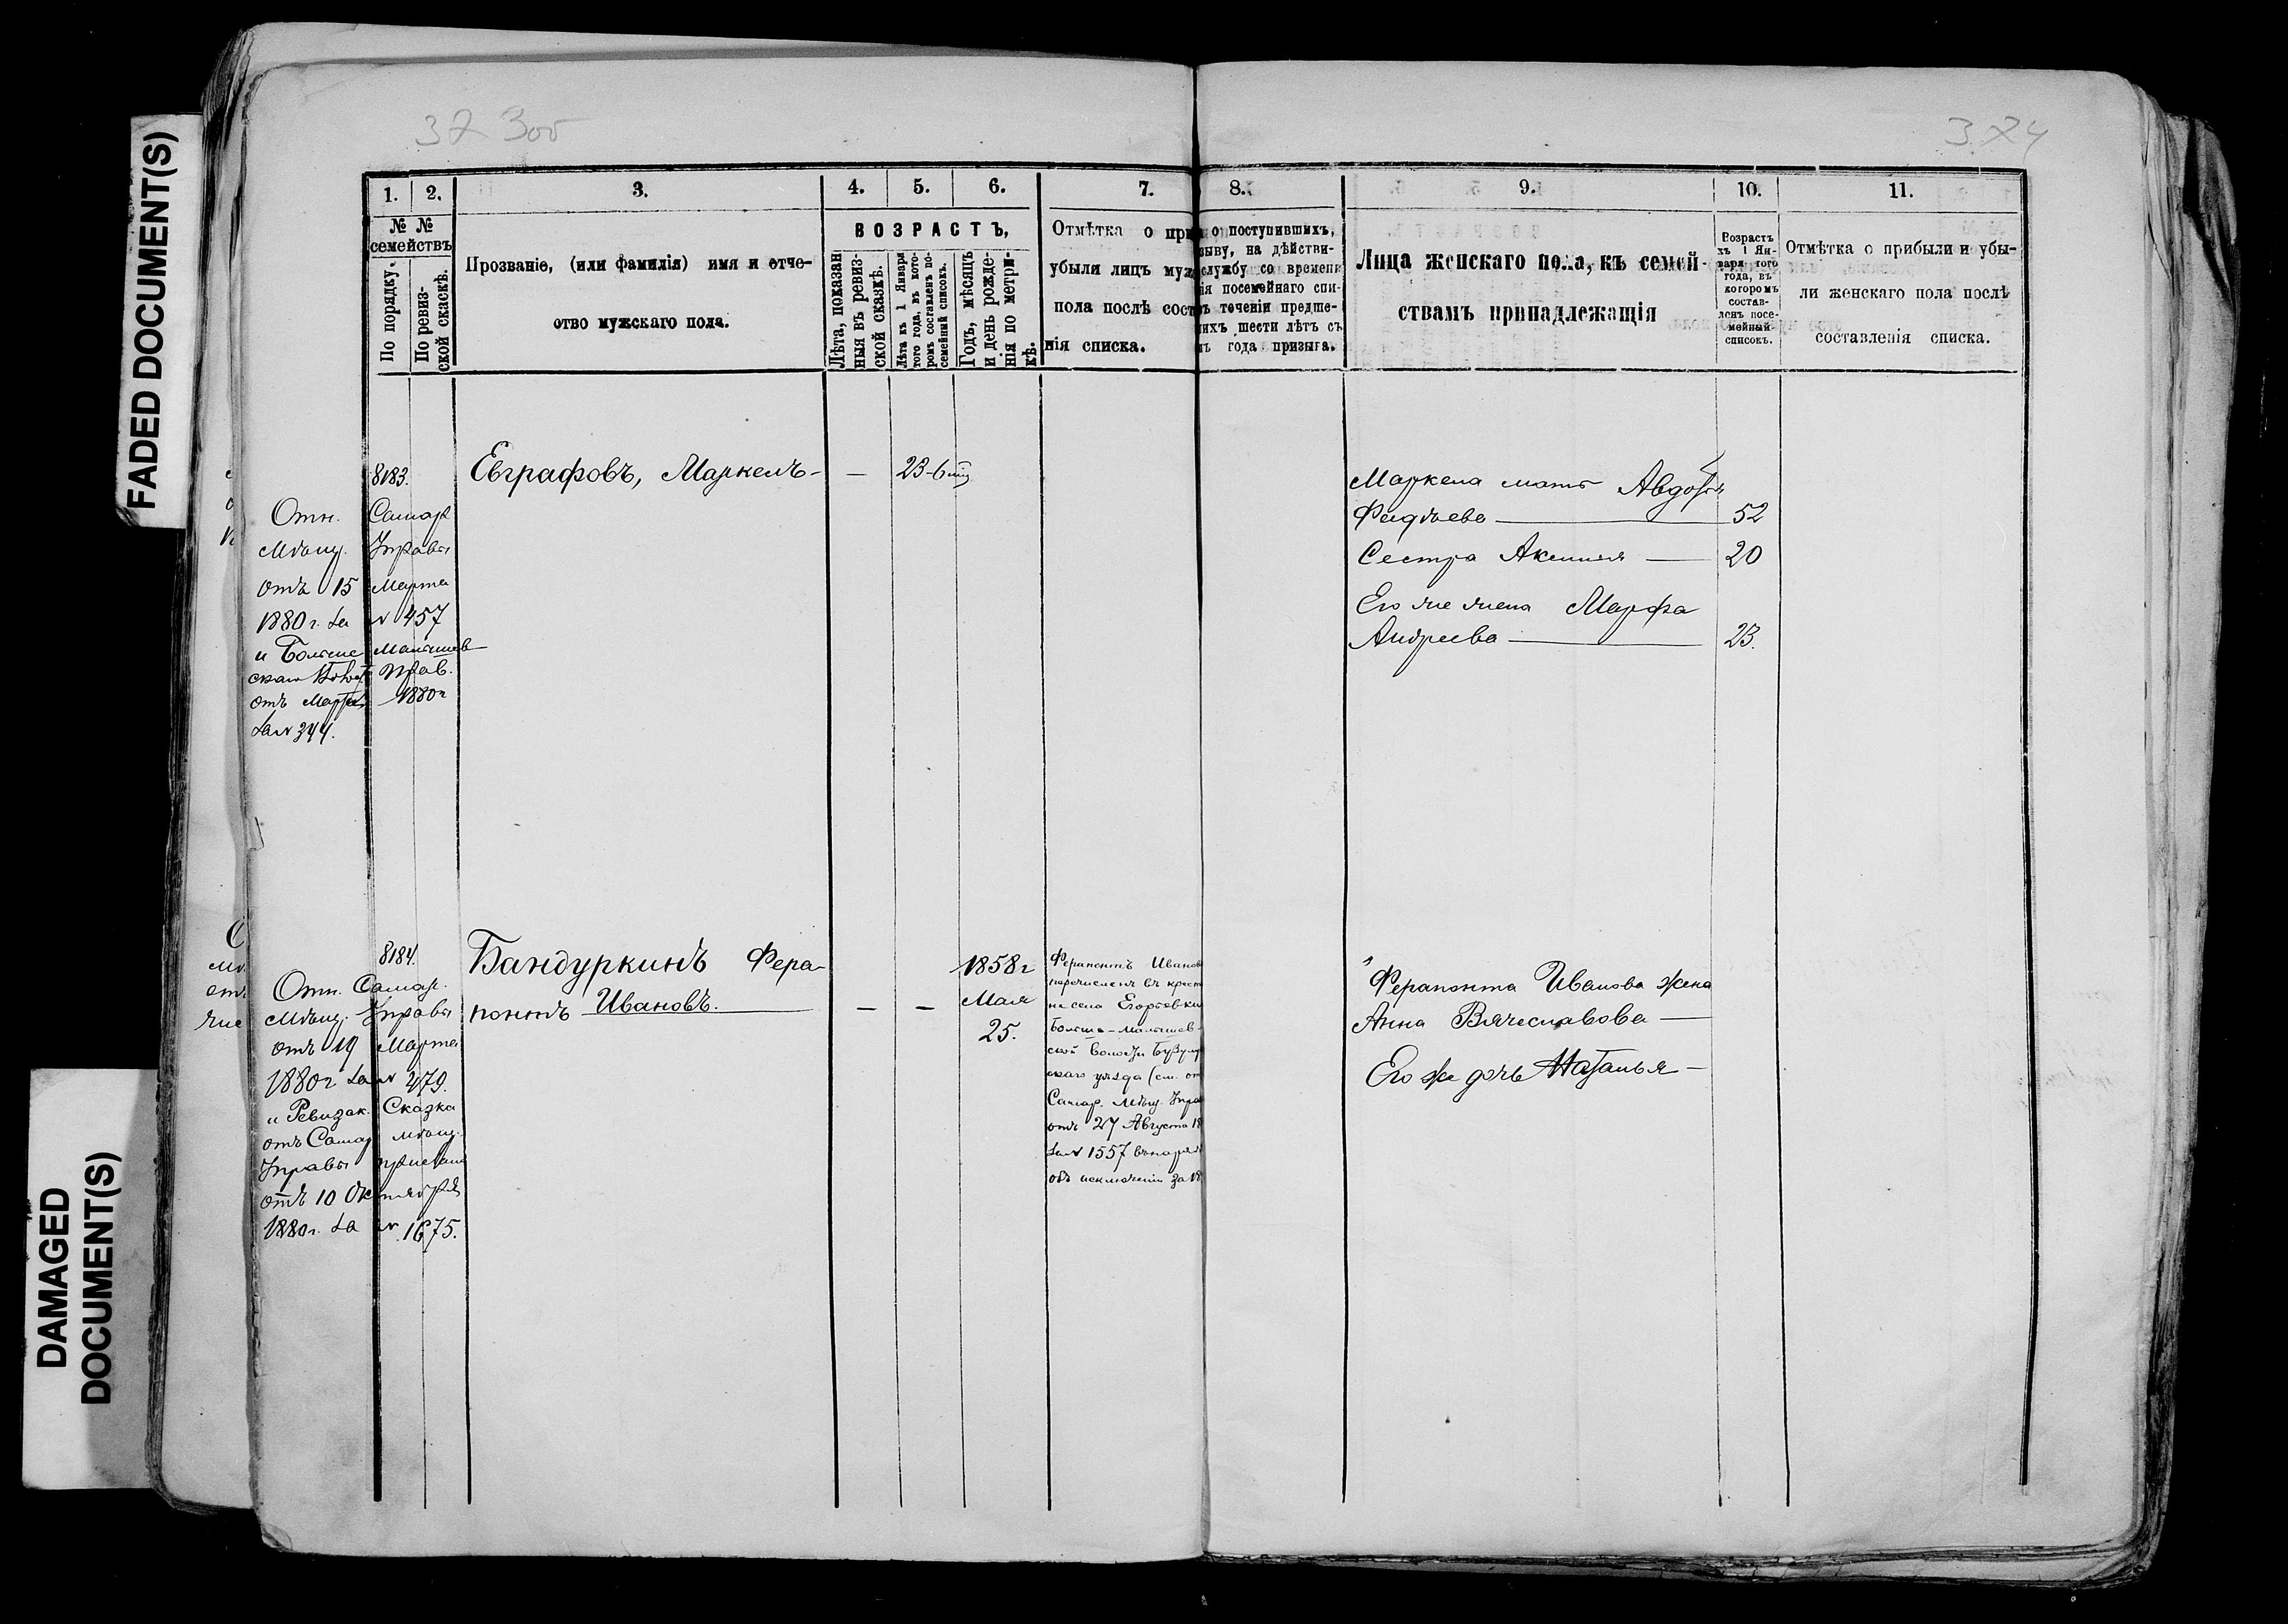 FADED DOCUMENT(S)
DAMAGED
DOCUMENT(S)
1. 2. 3. 4. 5. 6. 7. 8. 9. 10. 11.
№ №
семействъ
По порядку.
По ревиз-
ской скаскѣ.
Прозваніе, (или фамилія) имя и отче-
ство мужскаго пола.
ВОЗРАСТЪ,
Лѣта, показан
ныя въ ревиз-
ской сказкѣ.
Лѣта къ 1 Января
того года, въ кото-
ромъ составленъ по-
семейный списокъ.
Годъ, мѣсяцъ
и день рожде-
нія по метри-
кѣ.
Отмѣтка о при
убыли лицъ муж
пола послѣ сост
нія списка.
о поступившихъ,
зыву, на дѣйстви-
службу со времени
ія посемейнаго спи-
въ теченіи предше-
ихъ шести лѣтъ съ
ъ года призыва.
Лица женскаго пола, къ семей-
ствамъ принадлежащія
Возрастъ
хъ 1 Ян-
варя того
года, въ
которомъ
состав-
ленъ посе-
мейный
списокъ.
Отмѣтка о прибыли и убы-
ли женскаго пола послѣ
составленія списка.
8183.
Отн. Самар
Мѣщ. Управы
отъ 15 Марта
1880 г. за № 457
и Больше Малышев
скаго Прав.
отъ Марта 1880 г
за № 344.
Евграфовъ, Маркелъ —
— 23-6
Маркела мать Авдотья
Фадѣева — 52
Сестра Аксинья — 20
Его же жена Марфа
Андреева — 23.
8184.
Отн. Самар.
Мѣщ. Управы
отъ 19 Марта
1880 г за № 479.
и Ревизск. Сказка
отъ Самар Мѣщ.
Управы
отъ 10 Октября
1880 г. за № 1675.
Бандуркинъ Фера-
понтъ Ивановъ. — — —
1858 г
Мая
25.
Ферапонтъ Иванов
перечисленъ въ крест
не села Егорьевки
Больше-Малышев-
ской Волости Бузулу
скаго уѣзда (см. от
Самар. Мѣщ. Упра
отъ 27 Августа 18
за № 1557 въ наряд
объ исключеніи за 18
Ферапонта Иванова жена
Анна Вячеславова —
Его же дочь Наталья —